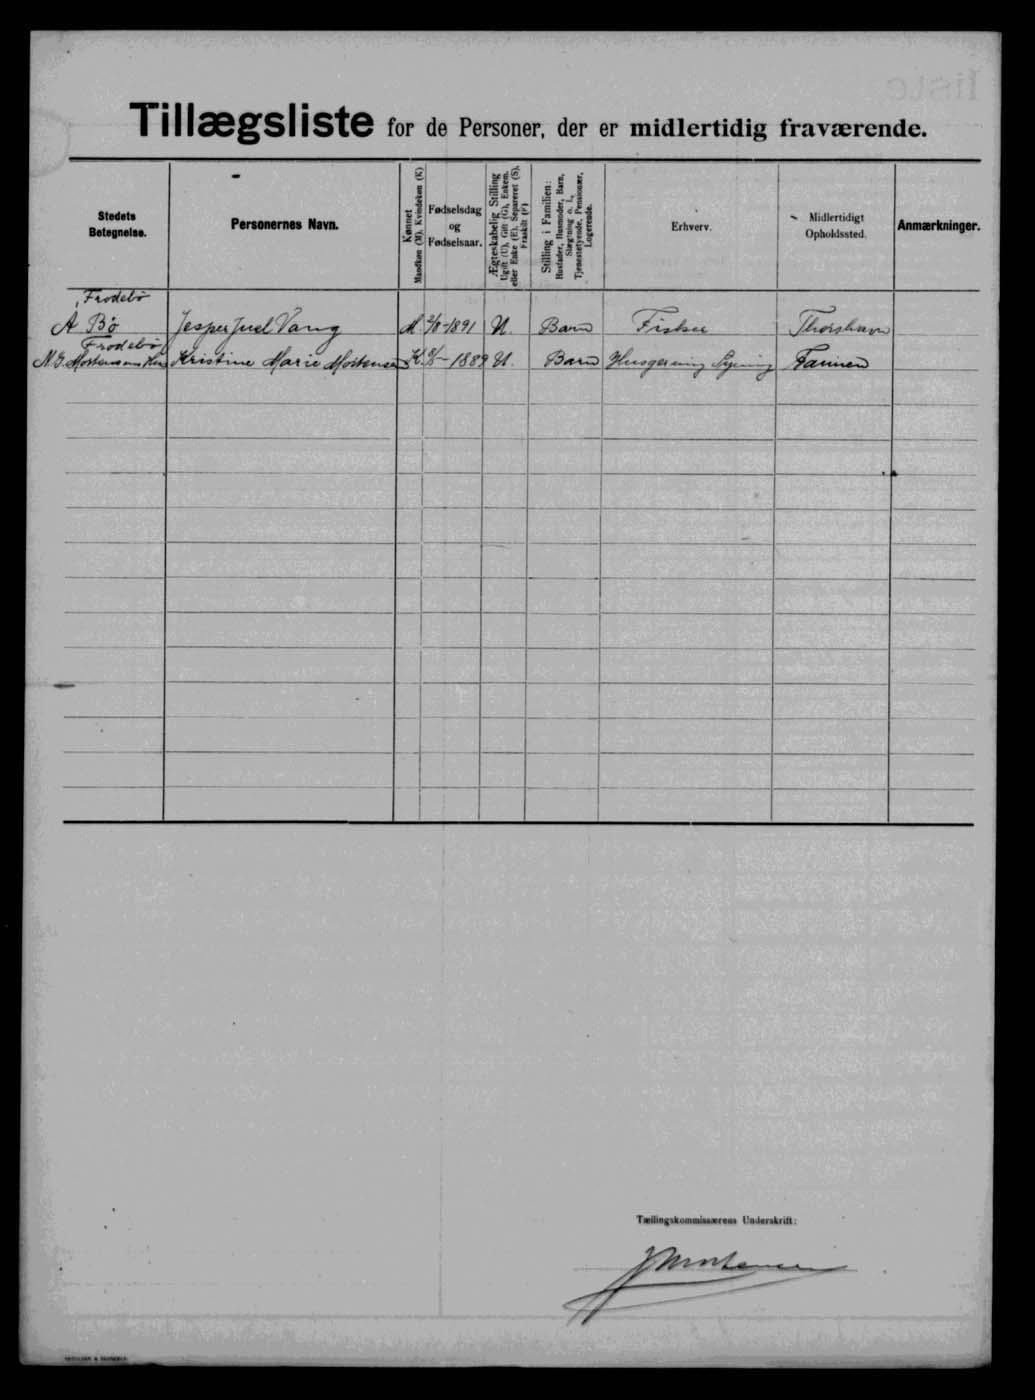 Tillægsliste for de Personer, der er midlertidig fraværende.
Stedets Betegnelse.
Personernes Navn.
Kønnet
Mandkøn (M), Kvindekøn (K)
Fødselsdag
og
Fødselsaar.
Ægteskabelig Stilling
Ugift (U), Gift (G), Enkem.
eller Enke (E), Separeret (S),
Fraskilt (F)
Stilling i Familien:
Husfader, Husmoder, Barn,
Slægtning o. l.,
Tjenestetyende, Pensionær,
Logerende.
Erhverv.
Midlertidigt
Opholdssted.
Anmærkninger.
Frodebø
A Bø Jesper Juel Vang M. 1891 U. Barn Fisker Thorshavn
Frodebø
N. J. Mortensens Hus Kristine Marie Mortensen K. 1889 U. Barn Husgerning Famien
Tællingskommissærens Underskrift:
J Mortensen